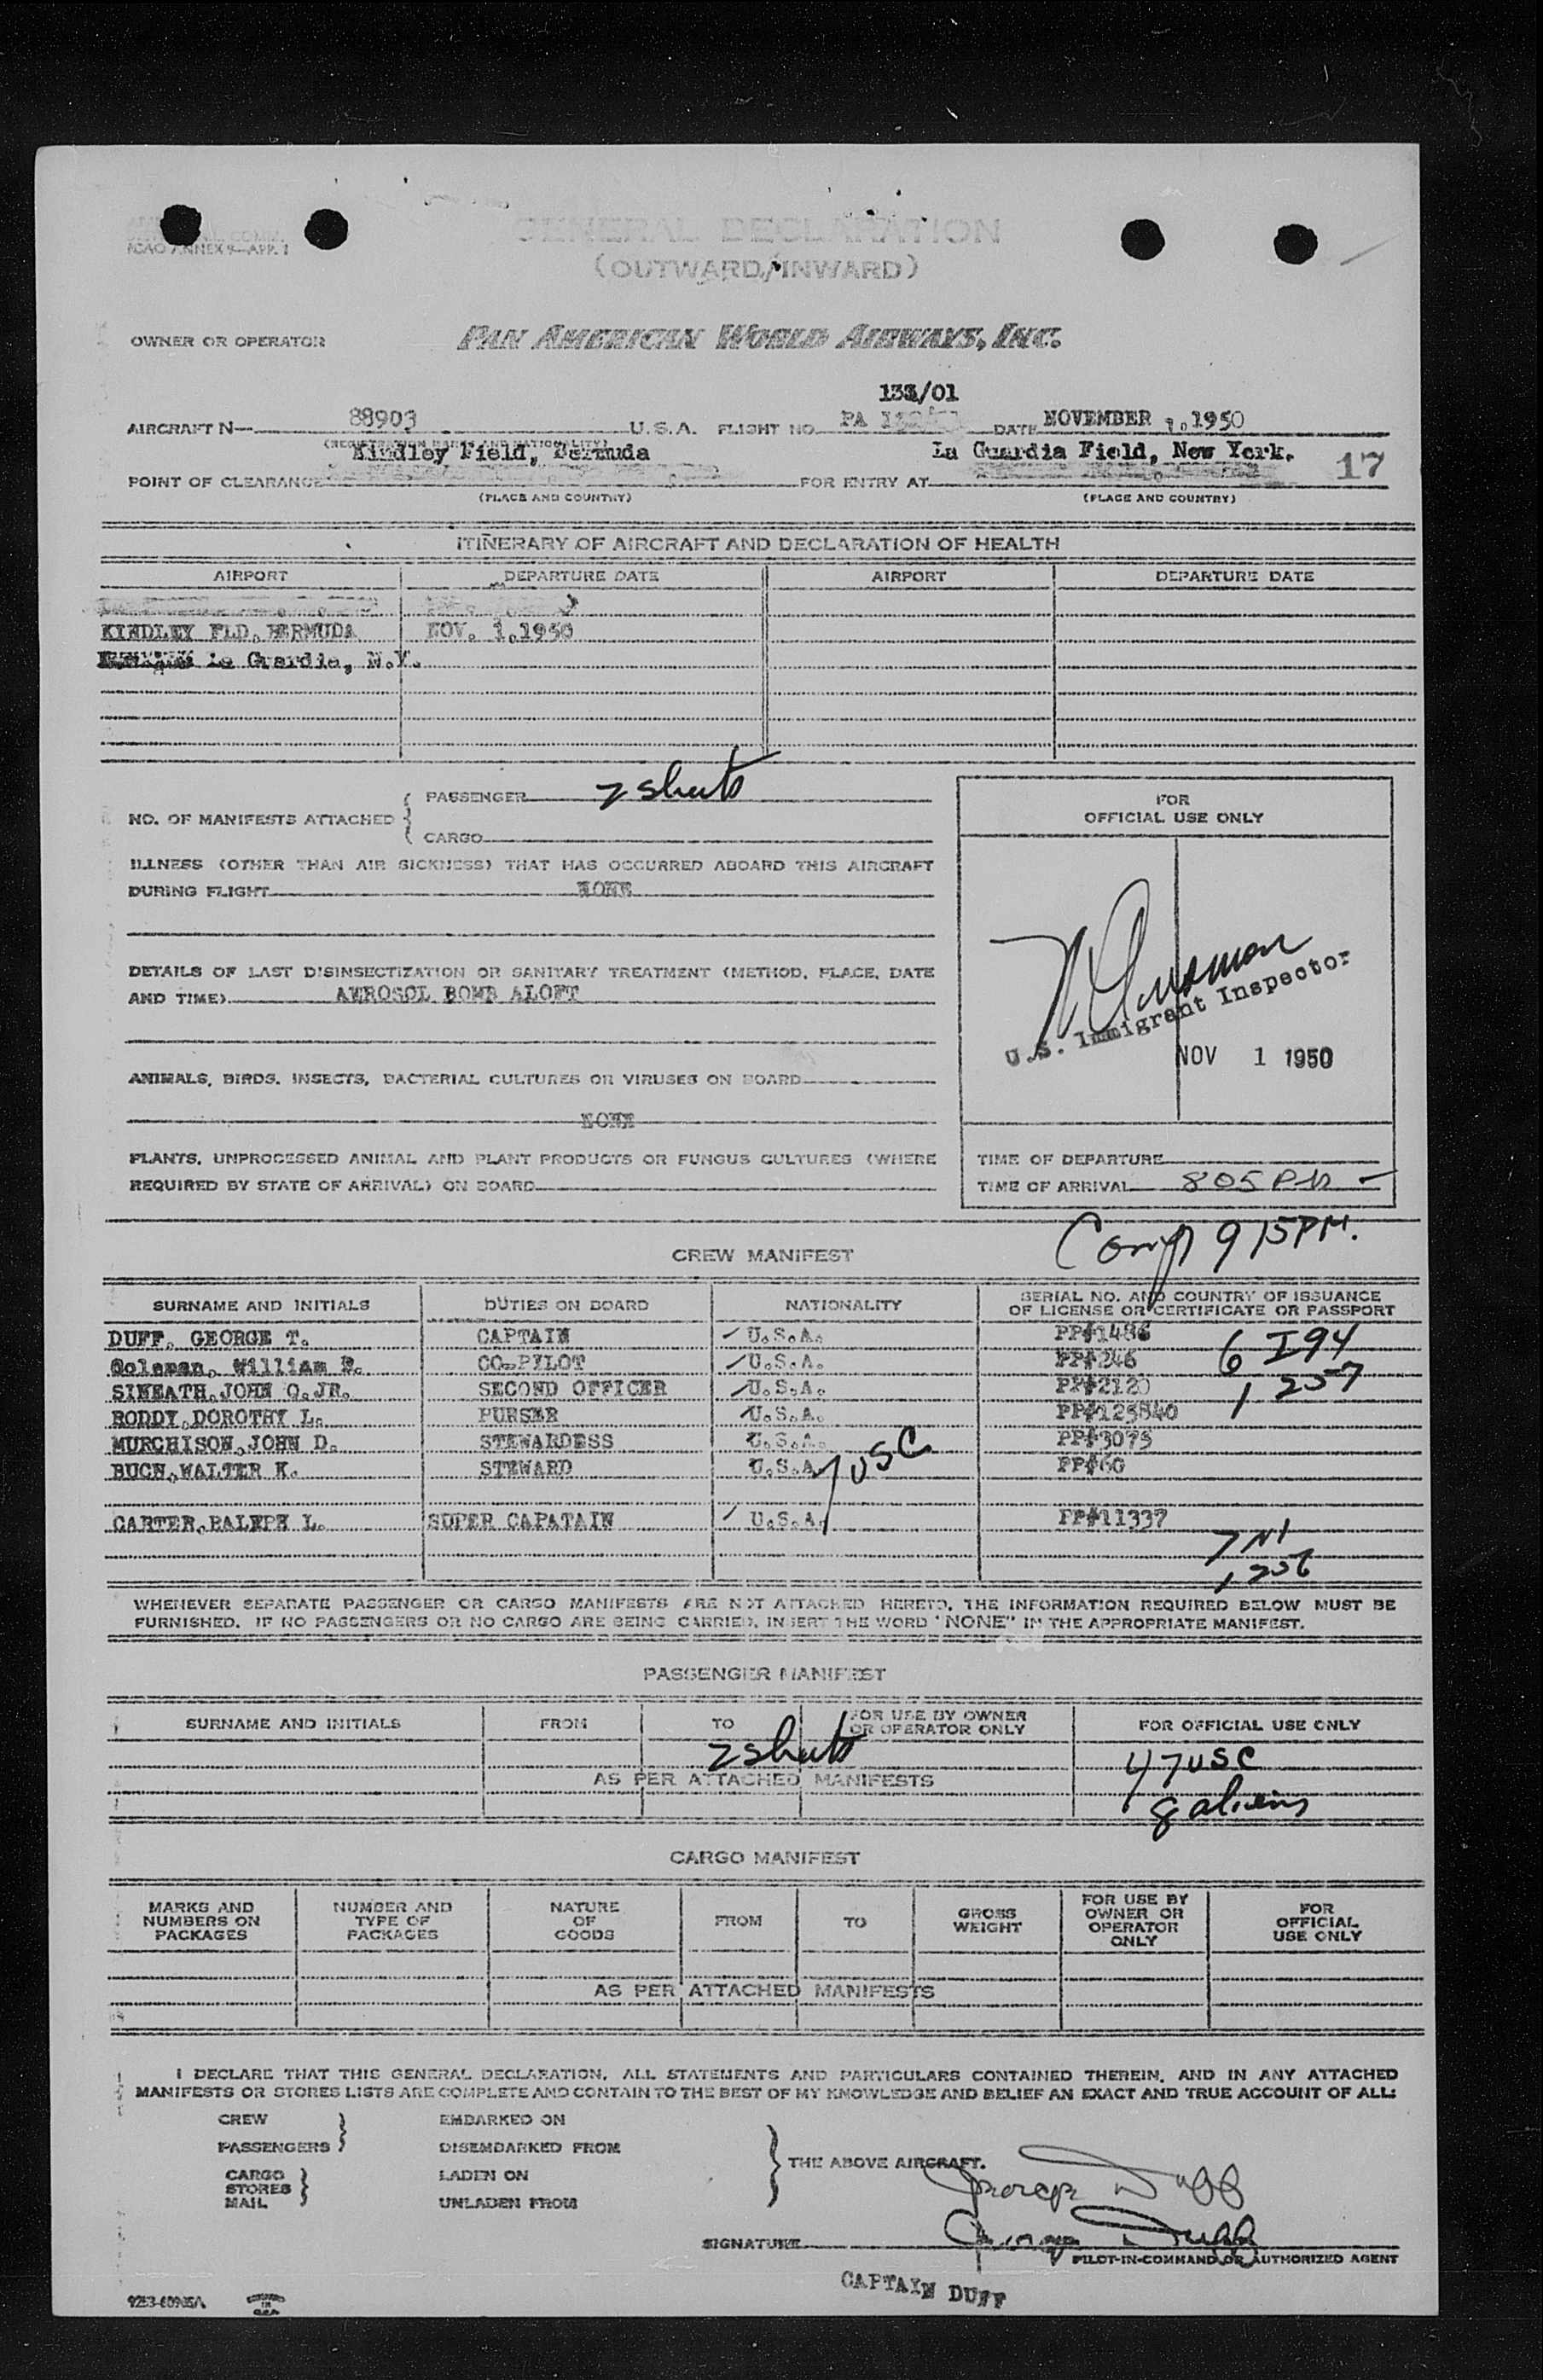 ICAO ANNEX 9—APP. 1
GENERAL DECLARATION
(OUTWARD/INWARD)
OWNER OR OPERATOR
PAN AMERICAN WORLD AIRWAYS, INC.
/01
AIRCRAFT N— 88903 U.S.A. FLIGHT NO. PA DATE NOVEMBER 1, 1950
(REGISTRATION MARKS AND NATIONALITY)
Kindley Field, Bermuda La Guardia Field, New York. 17
POINT OF CLEARANCE FOR ENTRY AT
(PLACE AND COUNTRY) (PLACE AND COUNTRY)
ITINERARY OF AIRCRAFT AND DECLARATION OF HEALTH
AIRPORT DEPARTURE DATE AIRPORT DEPARTURE DATE
KINDLEY FLD, BERMUDA NOV. 1,1950
La Guardia, N.Y.
NO. OF MANIFESTS ATTACHED { PASSENGER 2 sheets
CARGO
ILLNESS (OTHER THAN AIR SICKNESS) THAT HAS OCCURRED ABOARD THIS AIRCRAFT
DURING FLIGHT NONE
DETAILS OF LAST DISINSECTIZATION OR SANITARY TREATMENT (METHOD, PLACE, DATE
AND TIME) AEROSOL BOMB ALOFT
ANIMALS, BIRDS, INSECTS, BACTERIAL CULTURES OR VIRUSES ON BOARD
NONE
PLANTS, UNPROCESSED ANIMAL AND PLANT PRODUCTS OR FUNGUS CULTURES (WHERE
REQUIRED BY STATE OF ARRIVAL) ON BOARD
FOR
OFFICIAL USE ONLY
U.S. Immigrant Inspector
NOV 1 1950
TIME OF DEPARTURE
TIME OF ARRIVAL 805 PM
Comp 915 PM.
CREW MANIFEST
SURNAME AND INITIALS DUTIES ON BOARD NATIONALITY SERIAL NO. AND COUNTRY OF ISSUANCE
OF LICENSE OR CERTIFICATE OR PASSPORT
DUFF, GEORGE T. CAPTAIN U.S.A. PP#1486
Coleman, William E. CO-PILOT U.S.A. PP#246
6 I94
SINEATH,JOHN O.JR. SECOND OFFICER U.S.A. PP#2120
1,257
RODDY,DOROTHY L. PURSER U.S.A. PP#123840
MURCHISON,JOHN D. STEWARDESS U.S.A. PP#3075
BUCH,WALTER K. STEWARD U.S.A. PP#60
7 USC
CARTER,RALEPH L. SUPER CAPATAIN U.S.A. PP#11337
WHENEVER SEPARATE PASSENGER OR CARGO MANIFESTS ARE NOT ATTACHED HERETO, THE INFORMATION REQUIRED BELOW MUST BE
FURNISHED. IF NO PASSENGERS OR NO CARGO ARE BEING CARRIED, INSERT THE WORD "NONE" IN THE APPROPRIATE MANIFEST.
PASSENGER MANIFEST
SURNAME AND INITIALS FROM TO FOR USE BY OWNER
OR OPERATOR ONLY FOR OFFICIAL USE ONLY
2 sheets 47 USC
AS PER ATTACHED MANIFESTS
8 aliens
CARGO MANIFEST
MARKS AND
NUMBERS ON
PACKAGES
NUMBER AND
TYPE OF
PACKAGES
NATURE
OF
GOODS
FROM
TO
GROSS
WEIGHT
FOR USE BY
OWNER OR
OPERATOR
ONLY
FOR
OFFICIAL
USE ONLY
AS PER ATTACHED MANIFESTS
I DECLARE THAT THIS GENERAL DECLARATION, ALL STATEMENTS AND PARTICULARS CONTAINED THEREIN, AND IN ANY ATTACHED
MANIFESTS OR STORES LISTS ARE COMPLETE AND CONTAIN TO THE BEST OF MY KNOWLEDGE AND BELIEF AN EXACT AND TRUE ACCOUNT OF ALL:
CREW EMBARKED ON
PASSENGERS DISEMBARKED FROM
THE ABOVE AIRCRAFT.
CARGO LADEN ON
STORES
MAIL UNLADEN FROM
George Duff
SIGNATURE George Duff
PILOT-IN-COMMAND OR AUTHORIZED AGENT
CAPTAIN DUFF